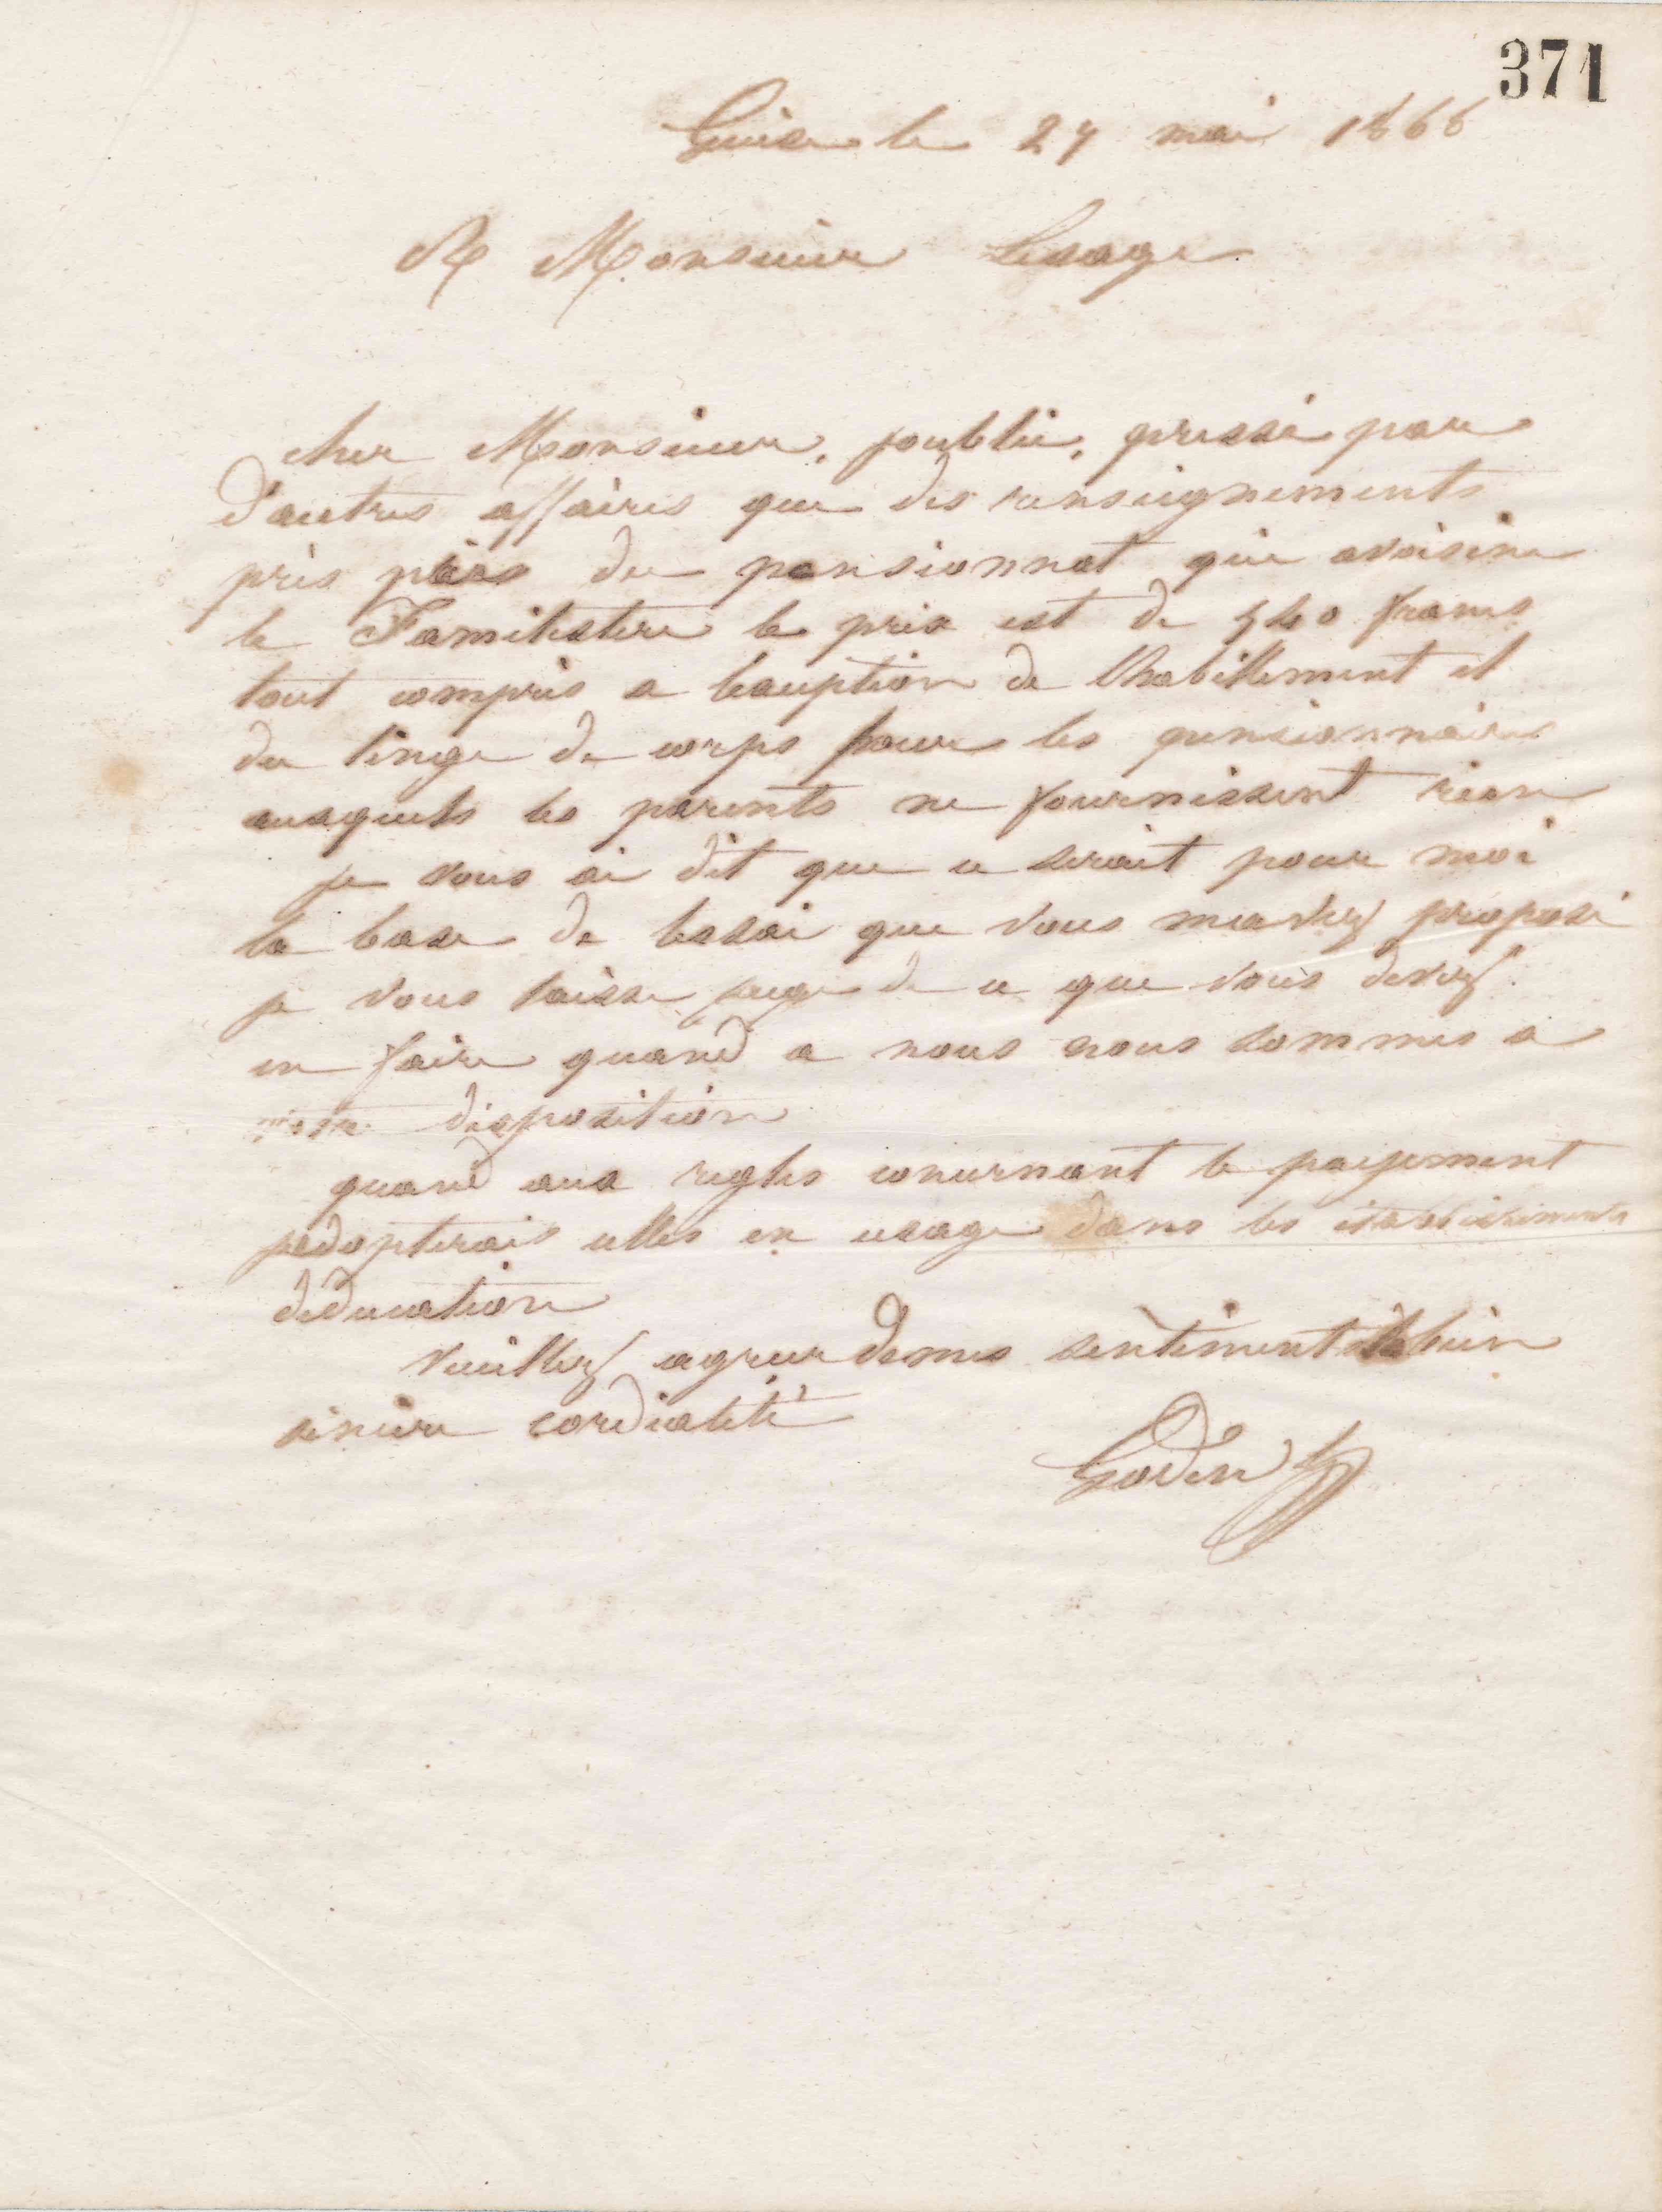 371
Guise le 27 mai 1866
A Monsieur Lesage
cher Monsieur, joublie, pressé par
d'autres affaires que des renseignements
pris près du pensionnat qui avoisine
le Familistere le prix est de 540 francs
tout compris a lexeption de lhabillement et
du linge de corps pour les pensionnaires
auxquels les parents ne fournissent rien
je vous ai dit que ce serait pour moi
la base de lessai que vous mavez proposé
je vous laisse juge de ce que vous devez
en faire quand a nous nous sommes a
votre disposition
quand aux regles concernant le payement
jadopterais celles en usage dans les établissements
déducation
Veuillez agreer de mes sentiments bien
sincère cordialité
Godin